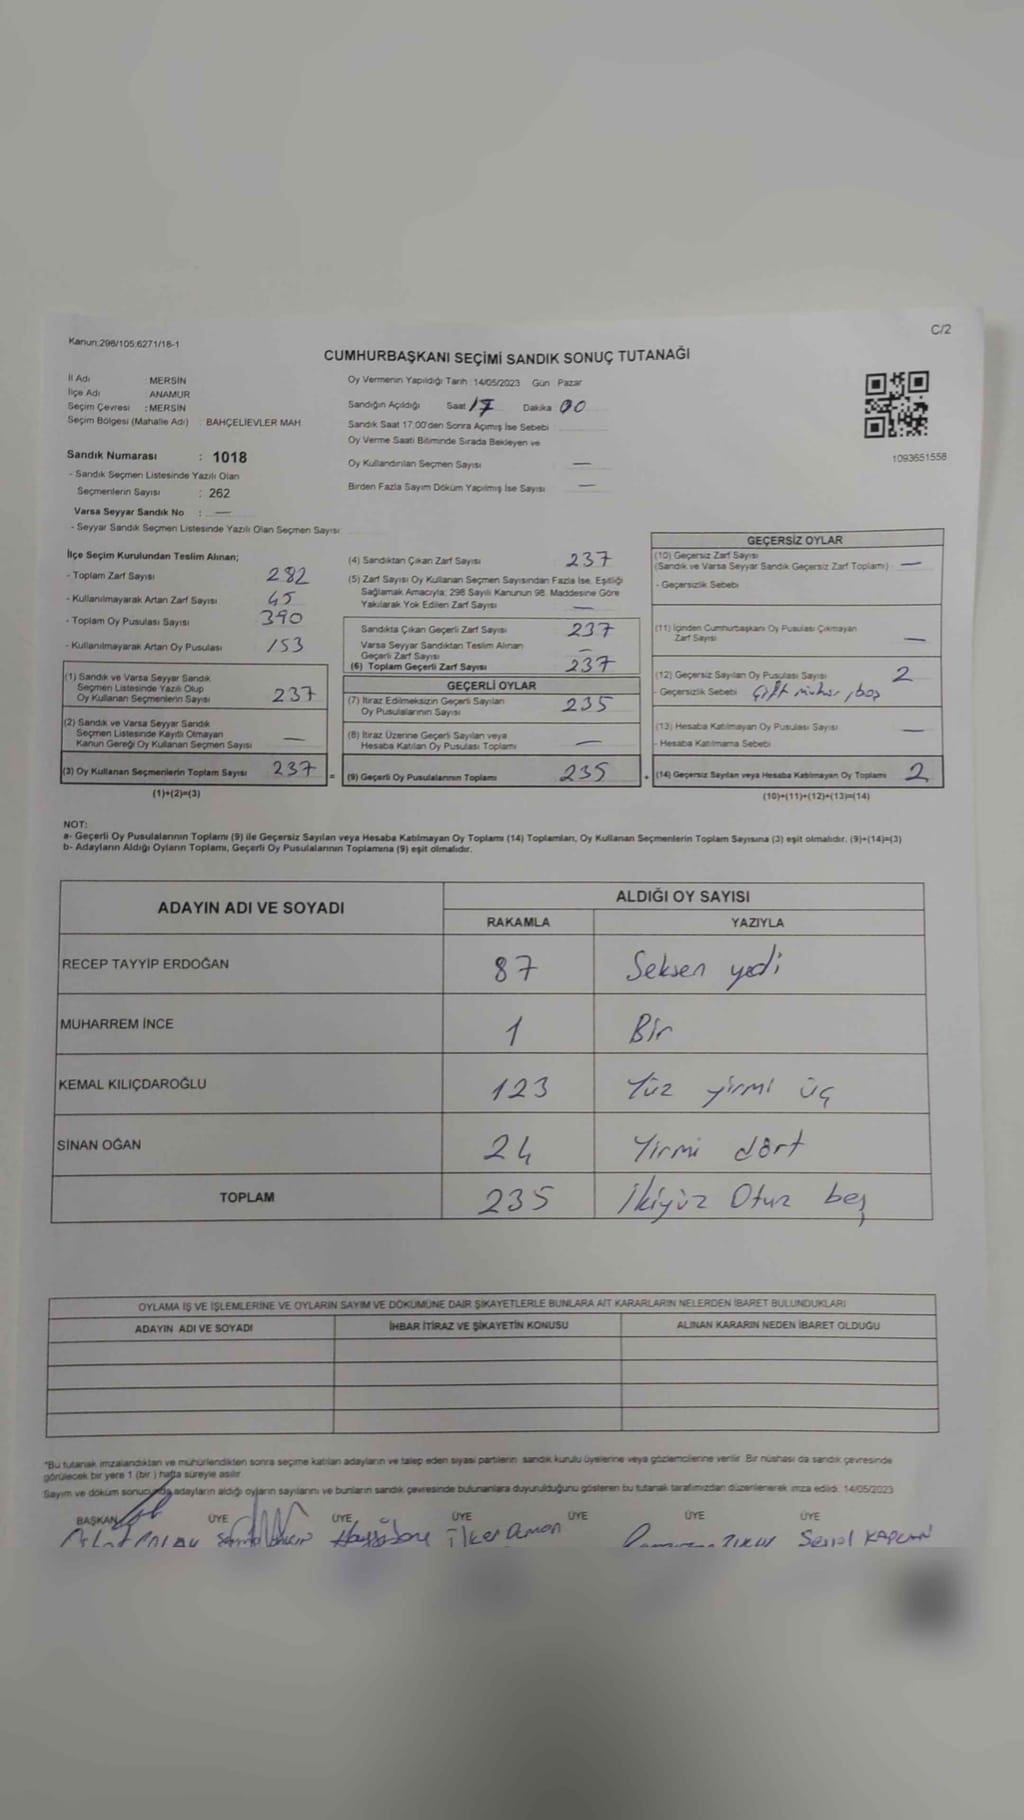 Kanun:298/105;6271/18-1
C/2
CUMHURBAŞKANI SEÇİMİ SANDIK SONUÇ TUTANAĞI
İl Adı : MERSİN
İlçe Adı : ANAMUR
Seçim Çevresi : MERSİN
Seçim Bölgesi (Mahalle Adı) : BAHÇELİEVLER MAH
Sandık Numarası : 1018
- Sandık Seçmen Listesinde Yazılı Olan
Seçmenlerin Sayısı : 262
Varsa Seyyar Sandık No : —
- Seyyar Sandık Seçmen Listesinde Yazılı Olan Seçmen Sayısı:
Oy Vermenin Yapıldığı Tarih :14/05/2023 Gün : Pazar
Sandığın Açıldığı Saat 17 Dakika 00
Sandık Saat 17.00'den Sonra Açımış İse Sebebi :
Oy Verme Saati Bitiminde Sırada Bekleyen ve
Oy Kullandırılan Seçmen Sayısı —
Birden Fazla Sayım Döküm Yapılmış İse Sayısı —
1093651558
İlçe Seçim Kurulundan Teslim Alınan;
- Toplam Zarf Sayısı 282
- Kullanılmayarak Artan Zarf Sayısı 45
- Toplam Oy Pusulası Sayısı 390
- Kullanılmayarak Artan Oy Pusulası 153
(1) Sandık ve Varsa Seyyar Sandık
Seçmen Listesinde Yazılı Olup
Oy Kullanan Seçmenlerin Sayısı 237
(2) Sandık ve Varsa Seyyar Sandık
Seçmen Listesinde Kayıtlı Olmayan
Kanun Gereği Oy Kullanan Seçmen Sayısı —
(3) Oy Kullanan Seçmenlerin Toplam Sayısı 237
(1)+(2)=(3)
=
(4) Sandıktan Çıkan Zarf Sayısı 237
(5) Zarf Sayısı Oy Kullanan Seçmen Sayısından Fazla İse, Eşitliği
Sağlamak Amacıyla; 298 Sayılı Kanunun 98. Maddesine Göre
Yakılarak Yok Edilen Zarf Sayısı —
Sandıkta Çıkan Geçerli Zarf Sayısı 237
Varsa Seyyar Sandıktan Teslim Alınan
Geçerli Zarf Sayısı —
(6) Toplam Geçerli Zarf Sayısı 237
GEÇERLİ OYLAR
(7) İtiraz Edilmeksizin Geçerli Sayılan
Oy Pusulalarının Sayısı 235
(8) İtiraz Üzerine Geçerli Sayılan veya
Hesaba Katılan Oy Pusulası Toplamı —
(9) Geçerli Oy Pusulalarının Toplamı 235
+
GEÇERSİZ OYLAR
(10) Geçersiz Zarf Sayısı
(Sandık ve Varsa Seyyar Sandık Geçersiz Zarf Toplamı) —
- Geçersizlik Sebebi
(11) İçinden Cumhurbaşkanı Oy Pusulası Çıkmayan
Zarf Sayısı —
(12) Geçersiz Sayılan Oy Pusulası Sayısı 2
- Geçersizlik Sebebi Çift mühür, boş
(13) Hesaba Katılmayan Oy Pusulası Sayısı —
- Hesaba Katılmama Sebebi
(14) Geçersiz Sayılan veya Hesaba Katılmayan Oy Toplamı 2
(10)+(11)+(12)+(13)=(14)
NOT:
a- Geçerli Oy Pusulalarının Toplamı (9) ile Geçersiz Sayılan veya Hesaba Katılmayan Oy Toplamı (14) Toplamları, Oy Kullanan Seçmenlerin Toplam Sayısına (3) eşit olmalıdır. (9)+(14)=(3)
b- Adayların Aldığı Oyların Toplamı, Geçerli Oy Pusulalarının Toplamına (9) eşit olmalıdır.
ADAYIN ADI VE SOYADI
ALDIĞI OY SAYISI
RAKAMLA YAZIYLA
RECEP TAYYİP ERDOĞAN 87 Seksen yedi
MUHARREM İNCE 1 Bir
KEMAL KILIÇDAROĞLU 123 Yüz yirmi üç
SİNAN OĞAN 24 Yirmi dört
TOPLAM 235 İkiyüz Otuz beş
OYLAMA İŞ VE İŞLEMLERİNE VE OYLARIN SAYIM VE DÖKÜMÜNE DAİR ŞİKAYETLERLE BUNLARA AİT KARARLARIN NELERDEN İBARET BULUNDUKLARI
ADAYIN ADI VE SOYADI İHBAR İTİRAZ VE ŞİKAYETİN KONUSU ALINAN KARARIN NEDEN İBARET OLDUĞU
"Bu tutanak imzalandıktan ve mühürlendikten sonra seçime katılan adayların ve talep eden siyasi partilerin sandık kurulu üyelerine veya gözlemcilerine verilir. Bir nüshası da sandık çevresinde
görülecek bir yere 1 (bir ) hafta süreyle asılır.
Sayım ve döküm sonucunda adayların aldığı oyların sayılarını ve bunların sandık çevresinde bulunanlara duyurulduğunu gösteren bu tutanak tarafımızdan düzenlenerek imza edildi. 14/05/2023
BAŞKAN ÜYE ÜYE ÜYE ÜYE ÜYE ÜYE
İlker Duman Şenol KAPLAN